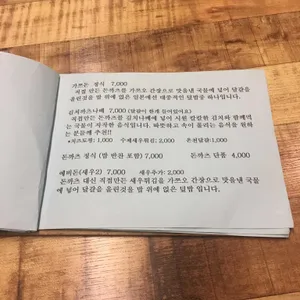 가쯔돈 정식 7,000
직접 만든 돈까스를 가쯔오 간장으로 맛을낸 국물에 넣어 달걀을
올린것을 밥 위에 얹은 일본에선 대중적인 덮밥중 하나입니다.
김치까스나베 7,000 (달걀이 함께 들어있어요)
직접만든 돈까스를 김치나베에 넣어 시원 칼칼한 김치와 함께먹
는 국물이 자작한 음식입니다. 따뜻하고 속이 풀리는 음식을 원하
는 분들께 추천!!
+치즈토핑:1,000 수제새우튀김:2,000 온천달걀:1,000
돈까스 정식 (밥 반찬 포함) 7,000 돈까스 단품 4,000
에비돈(새우2) 7,000 새우추가:2,000
돈까스 대신 직접만든 새우튀김을 가쯔오 간장으로 맛을낸 국물
에 넣어 달걀을 올린것을 밥 위에 얹은 덮밥 입니다.